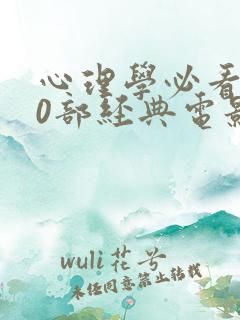 心理學必看
0部經典電影
wuli花兮
未經同意禁止轉載